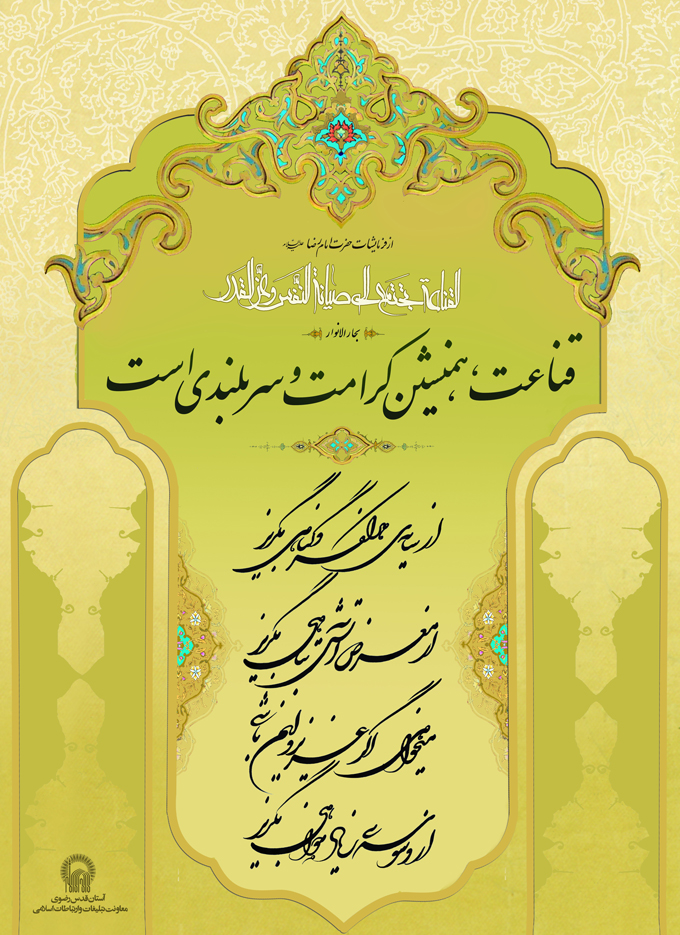 از فرمایشات حضرت امام رضا علیه السلام
القناعة تجتمع الی صیانة النفس و عز القدر
بحارالانوار
قناعت، همنشین کرامت و سربلندی است
از سایه‌ی هر فکر و گناهی بگریز
از معرض آتش تباهی بگریز
میخواهی اگر عزیز و ایمن باشی
از وسوسه زیاده خواهی بگریز
آستان قدس رضوی
معاونت تبلیغات و ارتباطات اسلامی